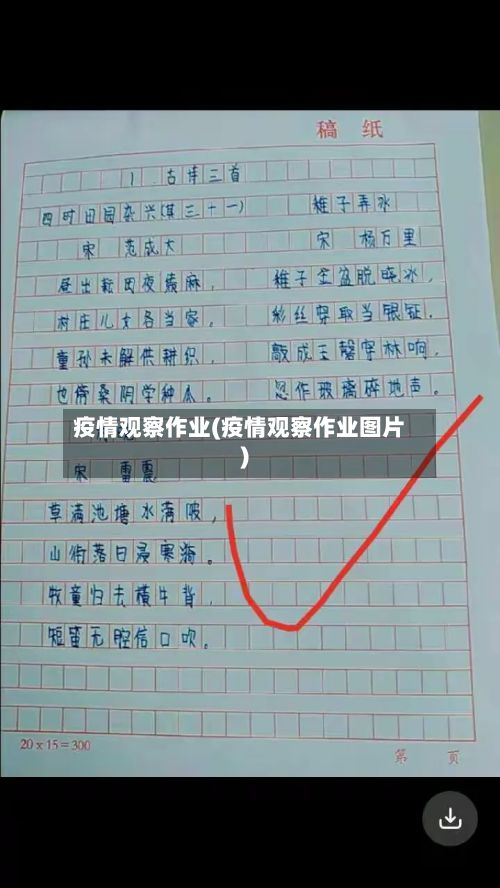 稿 纸
1 古诗三首
四时田园杂兴(其三十一)
宋 范成大
昼出耘田夜绩麻，
村庄儿女各当家。
童孙未解供耕织，
也傍桑阴学种瓜。
稚子弄冰
宋 杨万里
稚子金盆脱晓冰，
彩丝穿取当银钲。
敲成玉磬穿林响，
忽作玻璃碎地声。
疫情观察作业(疫情观察作业图片
)
宋 雷震
草满池塘水满陂，
山衔落日浸寒漪。
牧童归去横牛背，
短笛无腔信口吹。
20x15=300
第 页